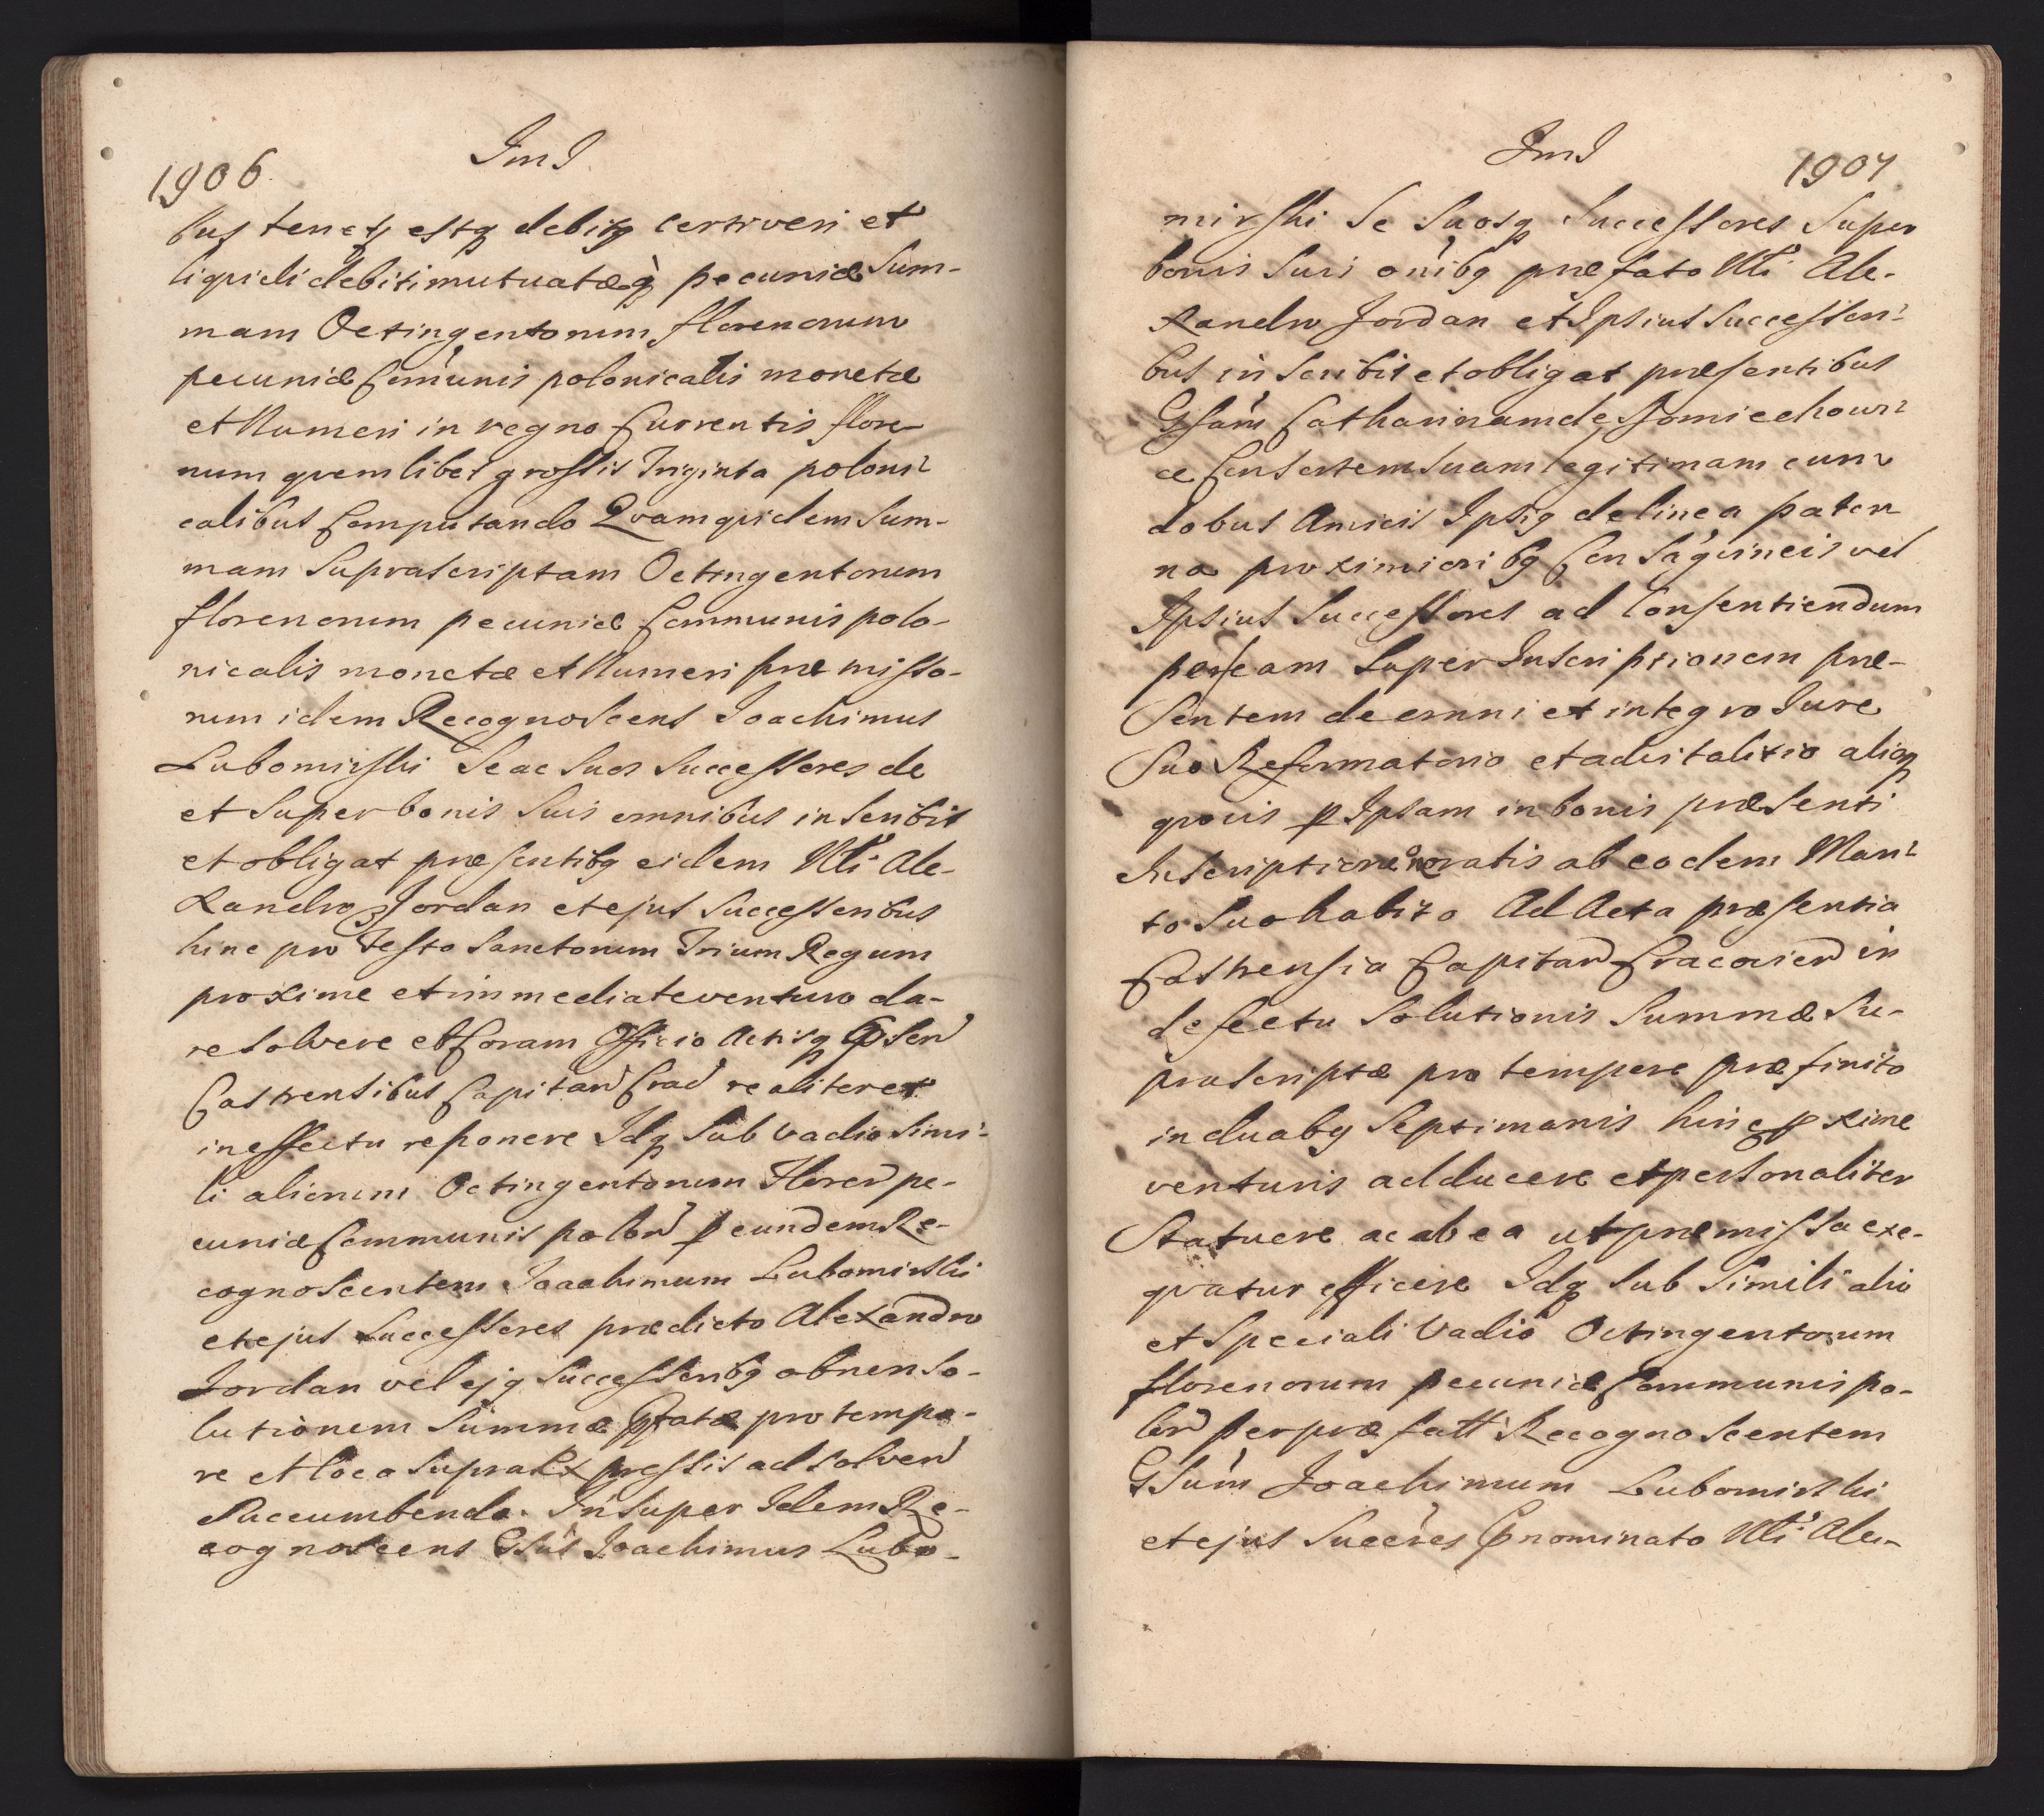 1906
JmJ
bus tenetq estq debitq certi veri et
liquidi debiti mutuatæq pecuniæ Sum-
mam Octingentorum florenorum
pecuniæ Com̄unis polonicalis monetæ
et Numeri in regno Currentis flore-
num quemlibet grossis Triginta poloni-
calibus Computando Quamquidem Sum-
mam Suprascriptam Octingentorum
florenorum pecuniæ Communis polo-
nicalis monetæ et Numeri præmisso-
rum idem Recognoscens Joachimus
Lubomirski Se ac Suos Successores de
et Super bonis Suis omnibus inscribit
et obligat præsentibq eidem Nli Ale-
xandro Jordan et ejus Successoribus
hinc pro Festo Sanctorum Trium Regum
proxime et immediate venturo da-
re solvere et Coram Officio Actisq psen
Castrensibus Capitan Crac realiter et
in effectu reponere Idq Sub vadio Simi-
li aliorum Octingentorum Floren pe-
cuniæ Communis polon p eundem Re-
cognoscentem Joachimum Lubomirski
et ejus Successores prædicto Alexandro
Jordan vel ejq Successoribq ob non So-
lutionem Summæ pfatæ pro tempo-
re et loco Supra Expressis ad Solven
Succumbendo. Insuper Idem Re-
cognoscens GSus Joachimus Lubo-
JmJ
1907
mirski Se Suosq Successores Super
bonis Suis oni̅bq præfato Nli Ale-
xandro Jordan et Ipsius Successori-
bus inscribit et obligat præsentibus
GSam Catharinam de Slomiechowi-
ce Consortem Suam legitimam cum
dobus Amicis Ipsiq de linea pater-
na proximioribq Consaguineis vel
Ipsius Successores ad Consentiendum
per eam Super Inscriptionem præ-
sentem de omni et integro Jure
Suo Reformatorio et advitalitio alioq
quovis p Ipsam in bonis præsenti
Inscriptione oneratis ab eodem Mari-
to Suo habito Ad Acta præsentia
Castrensia Capitan Cracovien in
defectu Solutionis Summæ Su-
prascriptæ pro tempore præfinito
in duabq Septimanis hinc pxime
venturis adducere et personaliter
Statuere ac ab ea ut præmissa exe-
quatur efficere Idq Sub Simili alio
et Speciali Vadio Octingentorum
florenorum pecuniæ Communis po-
lon per præfatt Recognoscentem
GSum Joachimum Lubomirski
et ejus Succēres pnominato Nli Ale-